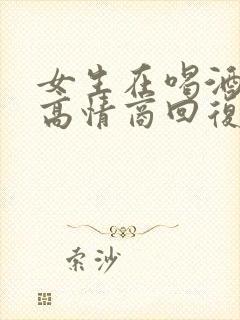 女生在喝酒
高情商回復
索沙